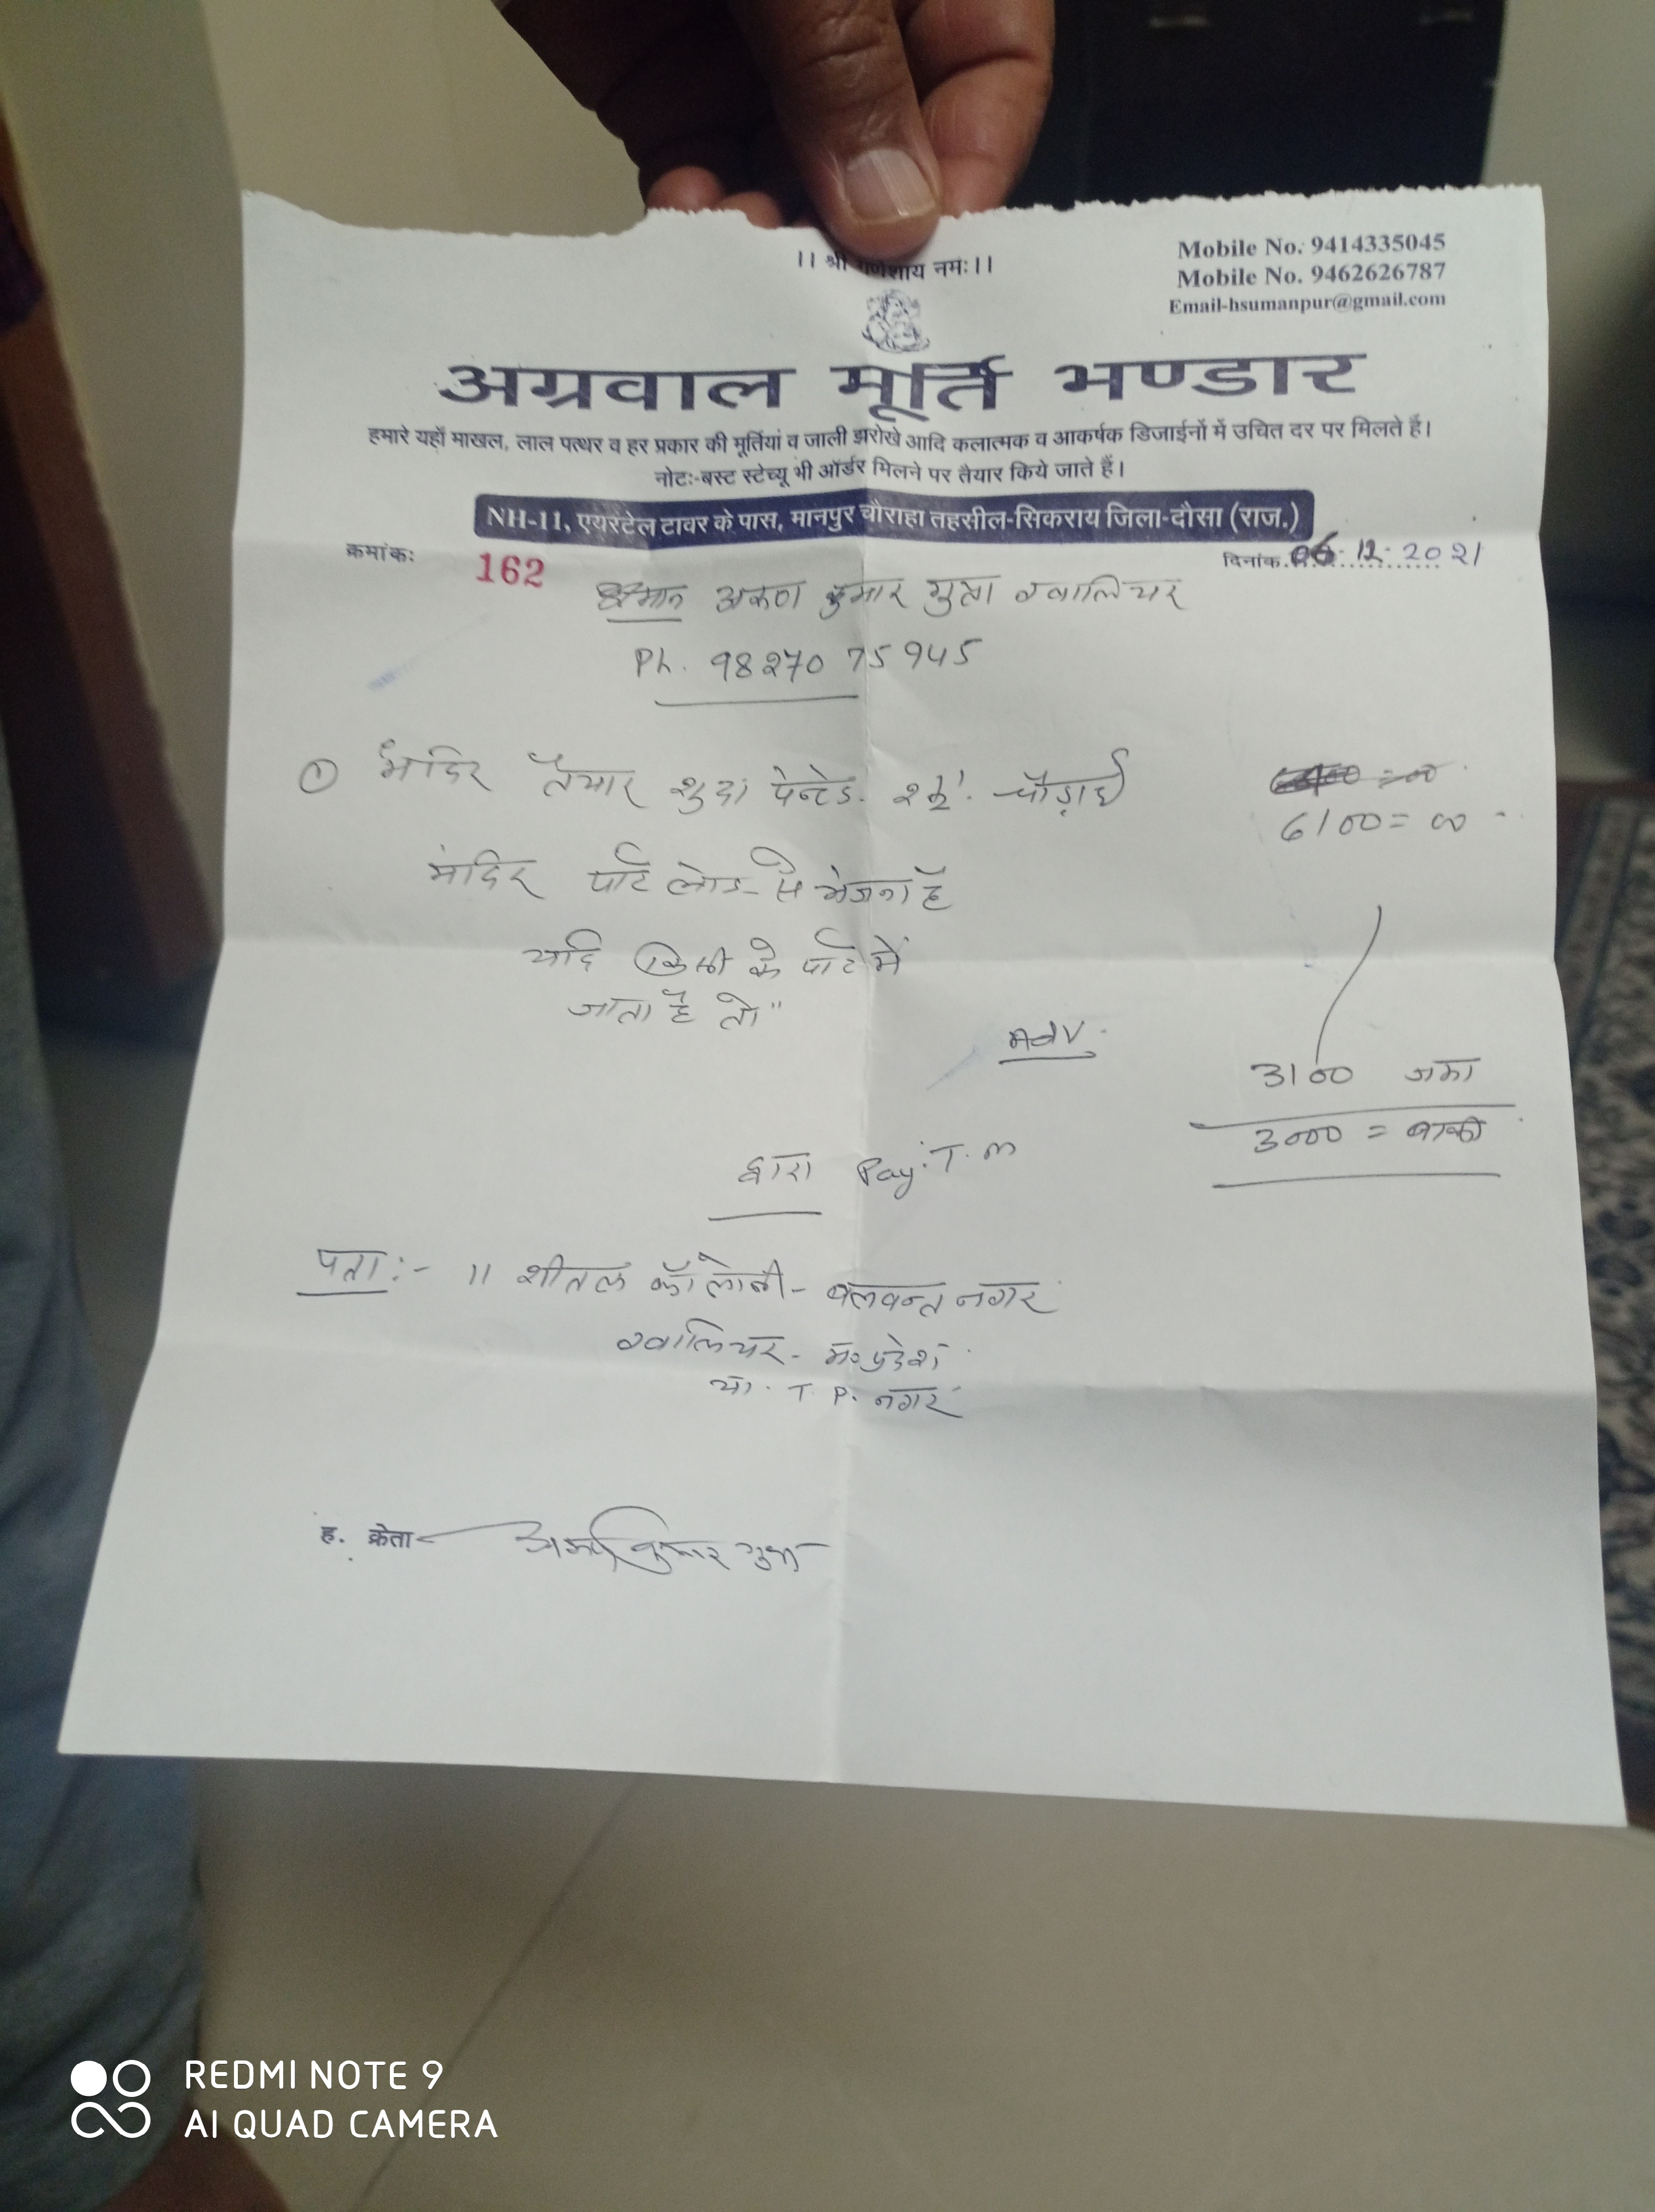 ।। श्री गणेशाय नमः।।
Mobile No. 9414335045
Mobile No. 9462626787
Email-hsumanpur@gmail.com
अग्रवाल मूर्ति भण्डार
हमारे यहाँ माखल, लाल पत्थर व हर प्रकार की मूर्तियां व जाली झरोखे आदि कलात्मक व आकर्षक डिजाईनों में उचित दर पर मिलते हैं।
नोटः-बस्ट स्टेच्यू भी ऑर्डर मिलने पर तैयार किये जाते हैं।
NH-11, एयरटेल टावर के पास, मानपुर चौराहा तहसील-सिकराय जिला-दौसा (राज.)
क्रमांकः 162 दिनांक 06-12-2021
श्रीमान अरूण कुमार गुप्ता ग्वालियर
Ph. 98270 75945
① मंदिर तैयार शुदा पेन्टेड. चौड़ाई
6100=00
मंदिर पार्ट लोड से भेजना है
यदि किसी के पार्ट में
जाता है तो"
Adv.
3100 जमा
3000 = बाकी
द्वारा Pay.T.m
पता:- 11 शीतल कॉलोनी- बलवन्त नगर
ग्वालियर- म०प्रदेश
या. T. P. नगर
ह. क्रेता अरूण कुमार गुप्ता
REDMI NOTE 9
AI QUAD CAMERA